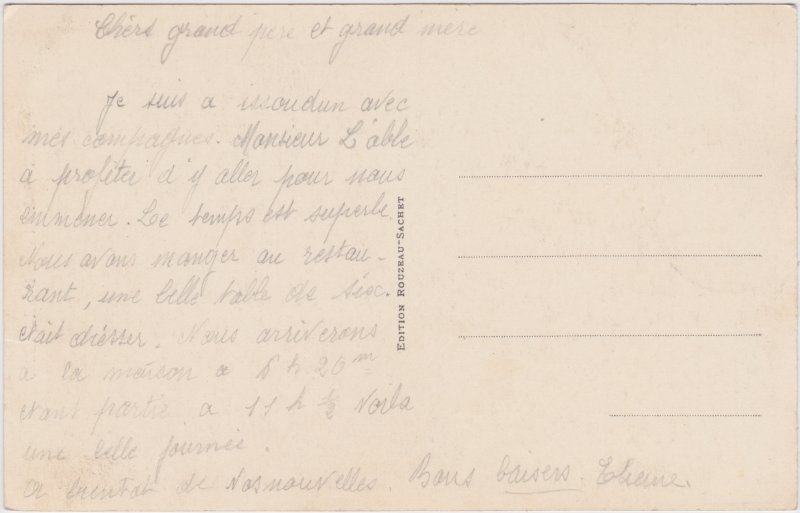 Chers grand père et grand mère
Je suis a issoudun avec
mes compagnes. Monsieur L'able
a profiter d'y aller pour nous
emmener. Le temps est superbe.
Nous avons manger au restau-
rant, une belle table de six.
etait dresser. Nous arriverons
a la maison a 6 h 20 m
etant partie a 11 h ½ Voila
une belle journée.
a bientot de vos nouvelles. Bons baisers.
EDITION ROUZEAU-SACHET